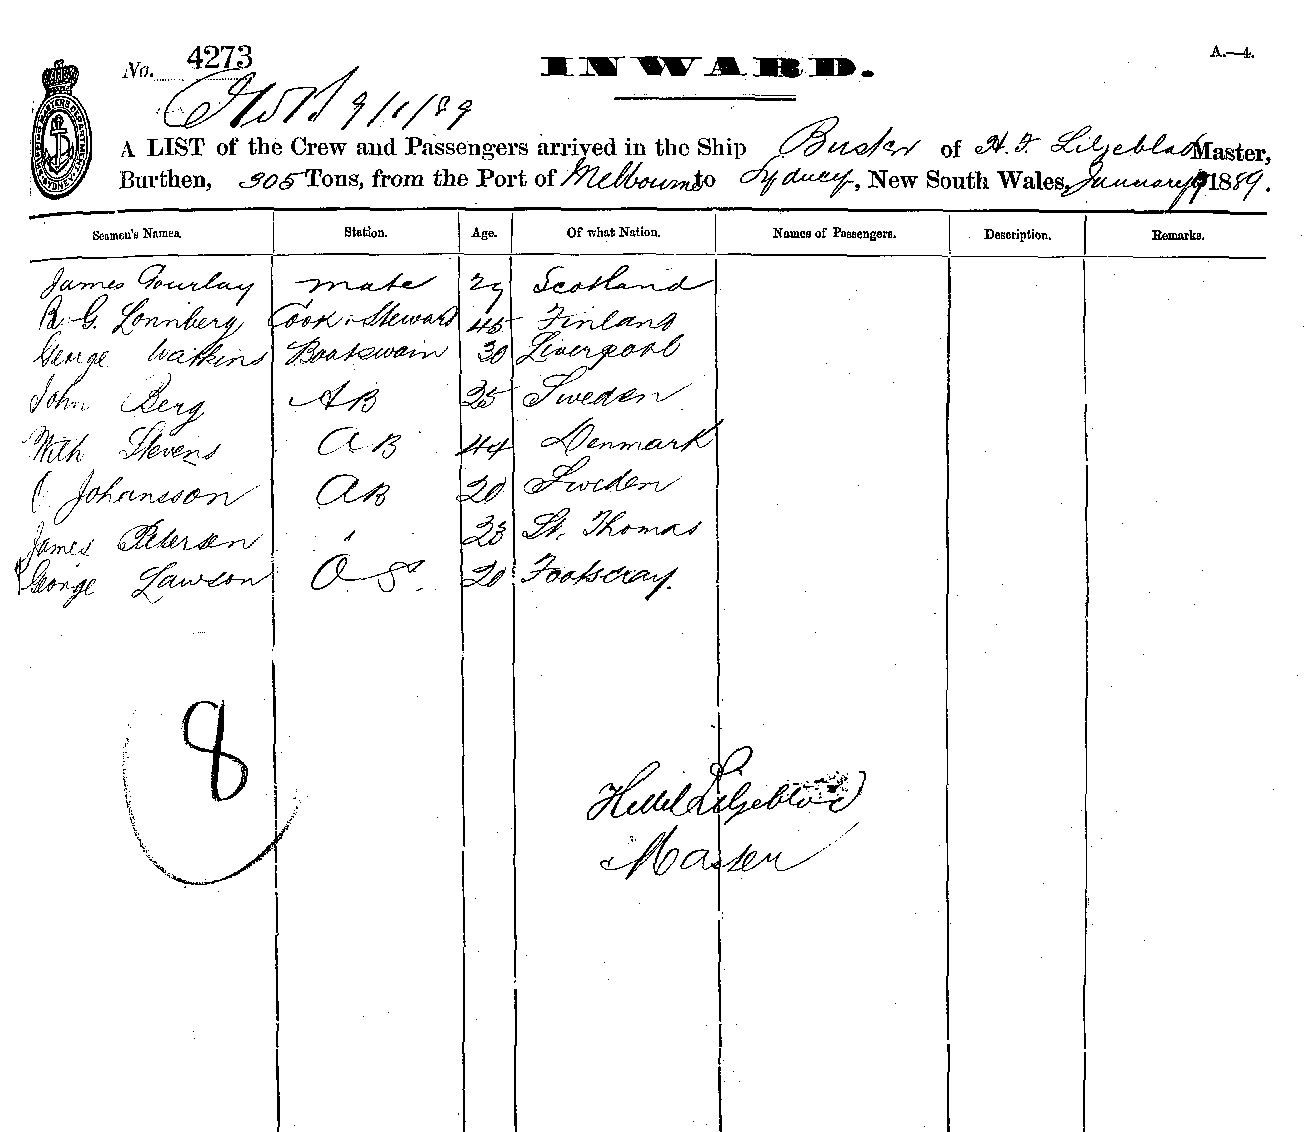 No. 4273
INWARD.
A.—4.
9/1/89
A LIST of the Crew and Passengers arrived in the Ship Buster of H. F. Liljeblad Master,
Burthen, 305 Tons, from the Port of Melbourne to Sydney, New South Wales, January 9 1889.
Seamen's Names. Station. Age. Of what Nation. Names of Passengers. Description. Remarks.
James Gourlay mate 29 Scotland
R. G. Lonnberg Cook & Steward 45 Finland
George Watkins Boatswain 30 Liverpool
John Berg AB 25 Sweden
Stevens AB 44 Denmark
Johansson AB 20 Sweden
James Petersen 23 St. Thomas
George Lawson OS 20 Footscray.
8
Liljeblad
Master